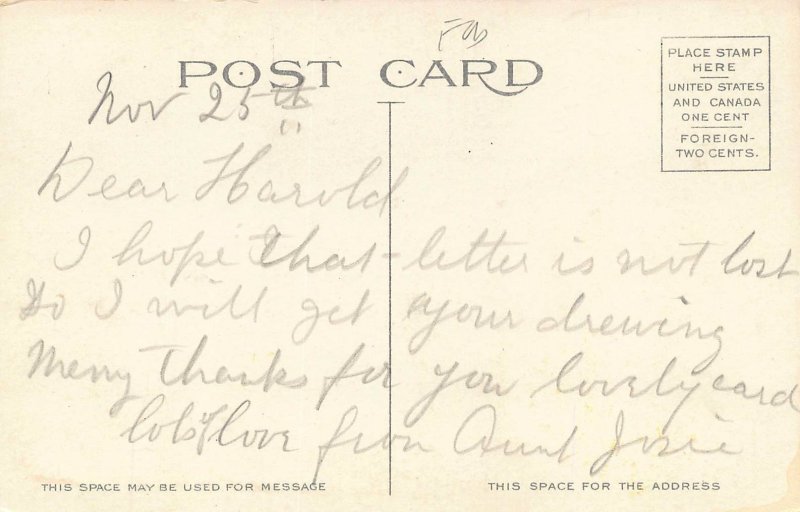 POST CARD
PLACE STAMP
HERE
UNITED STATES
AND CANADA
ONE CENT
FOREIGN-
TWO CENTS.
Nov 25th
Dear Harold
I hope that letter is not lost
So I will get your drewing
Meny thanks for you lovely card
lots of love from Aunt Josie
THIS SPACE MAY BE USED FOR MESSAGE
THIS SPACE FOR THE ADDRESS